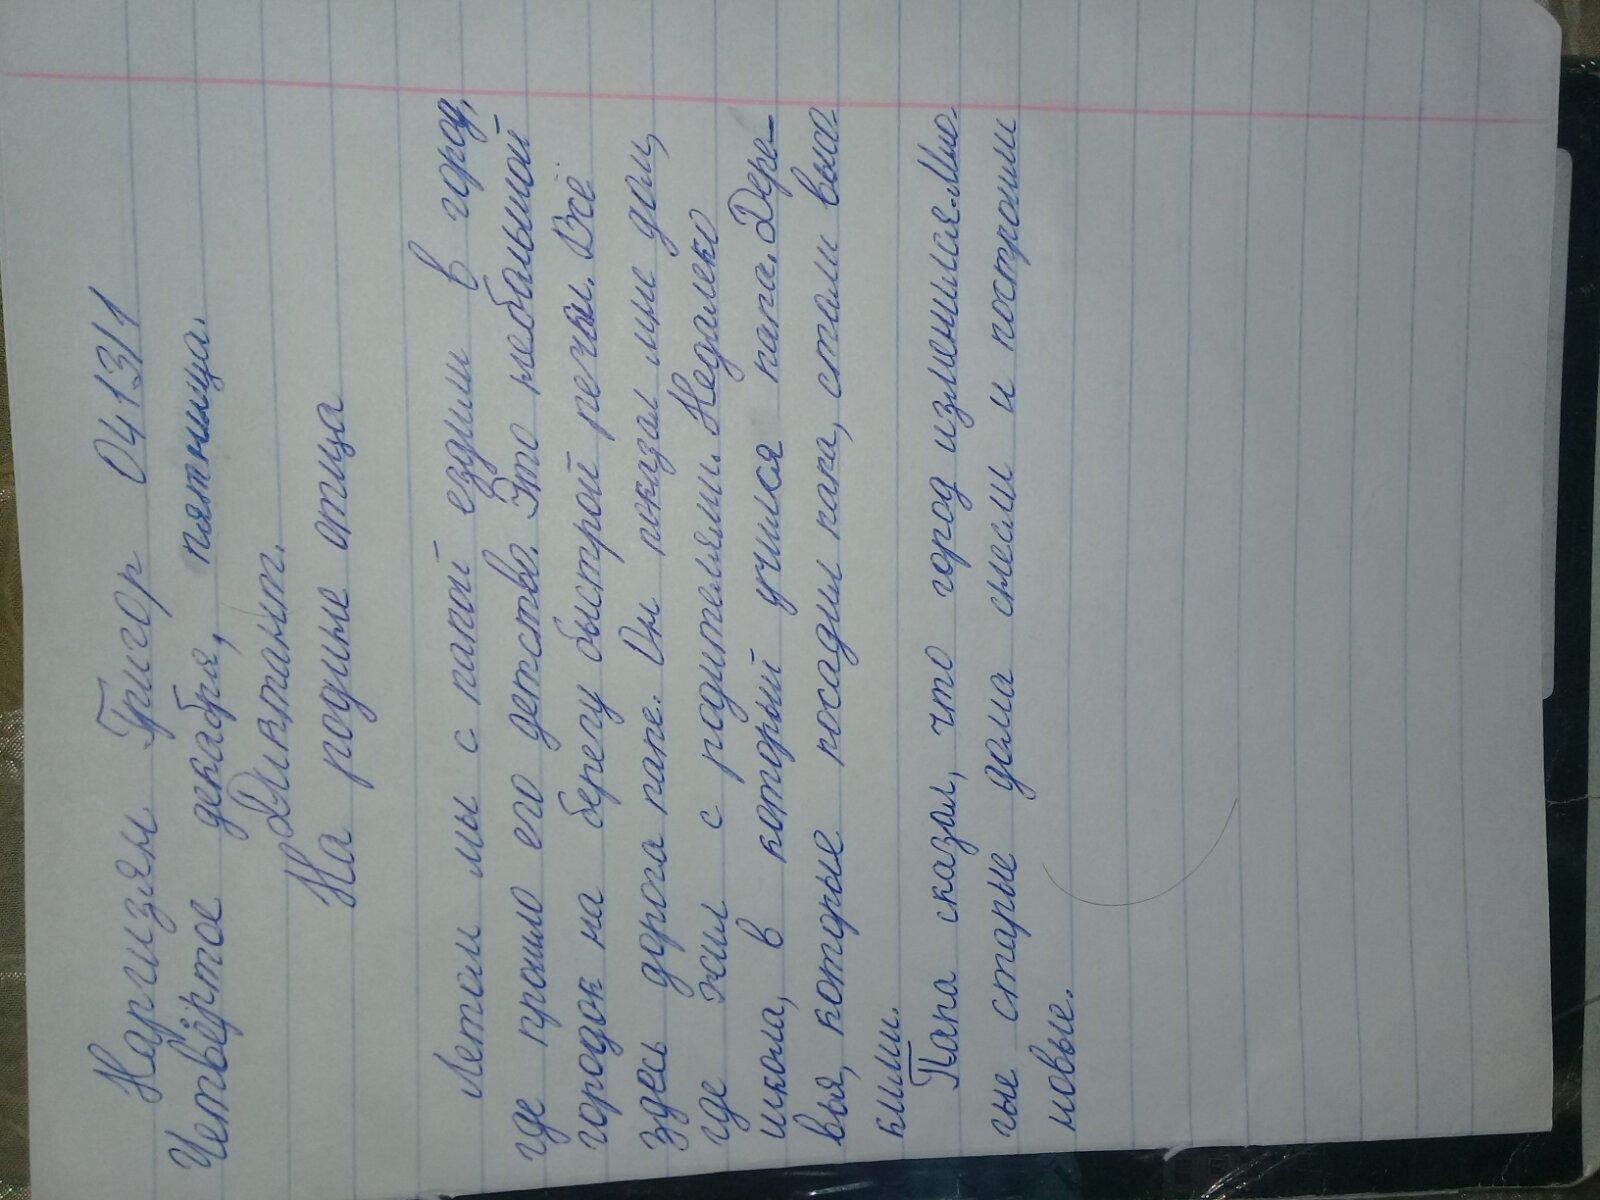 Наргизян Григор 0413/1
Четвёртое декабря, пятница.
Диктант.
На родине отица
Летом мы с папой ездили в город,
где прошло его детство. Это небольшой
городок на берегу быстрой речки. Всё
здесь дорого папе. Он показал мне дом,
где жил с родителями. Недалеко
школа, в который учился папа. Дере-
вья, которые посадил папа, стали высо
кими.
Папа сказал, что город изменился. Мно
гые старые дома снесли и построили
новые.